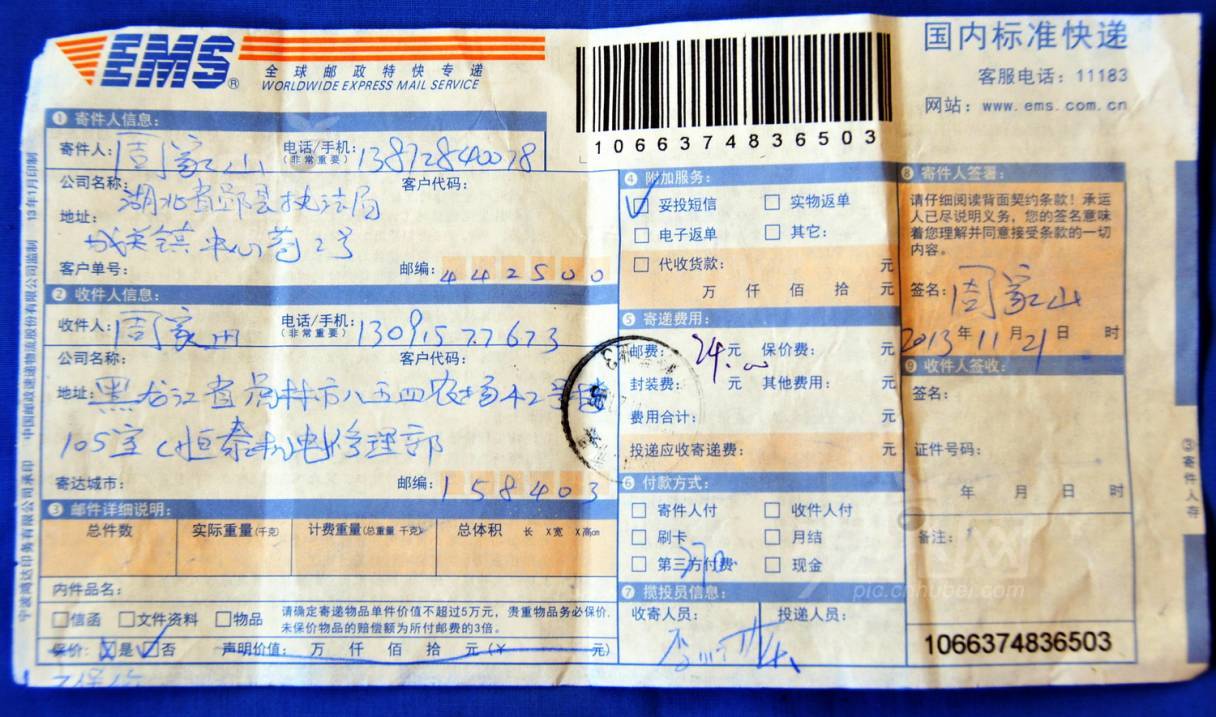 EMS®
全球邮政特快专递
WORLDWIDE EXPRESS MAIL SERVICE
1066374836503
国内标准快递
客服电话：11183
网站：www.ems.com.cn
❶ 寄件人信息：
寄件人：周家山 电话/手机：（非常重要）13872840078
公司名称： 客户代码：
湖北省郧县执法局
地址：
城关镇中心街2号
客户单号： 邮编：442500
❷ 收件人信息：
收件人：周家 电话/手机：（非常重要）13091577673
公司名称： 客户代码：
地址：黑龙江省虎林市八五四农场42号楼
105室（恒泰机电修理部
寄达城市： 邮编：158403
❸ 邮件详细说明：
总件数 实际重量（千克） 计费重量（总重量 千克） 总体积 长 X宽 X高cm
内件品名：
信函 文件资料 物品 请确定寄递物品单件价值不超过5万元，贵重物品务必保价，
未保价物品的赔偿额为所付邮费的3倍。
保价： 是 否 声明价值： 万 仟 佰 拾 元（￥ 元）
❹ 附加服务：
妥投短信 实物返单
电子返单 其它：
代收货款： 元
万 仟 佰 拾 元
❺ 寄递费用：
邮费：24.00元 保价费： 元
封装费： 元 其他费用： 元
费用合计： 元
投递应收寄递费： 元
❻ 付款方式：
寄件人付 收件人付
刷卡 月结
第三方付费 现金
❼ 揽投员信息：
收寄人员： 投递人员：
❽ 寄件人签署：
请仔细阅读背面契约条款！承运
人已尽说明义务，您的签名意味
着您理解并同意接受条款的一切
内容。
签名：周家山
2013年11月21日 时
❾ 收件人签收：
签名：
证件号码：
年 月 日 时
备注：
1066374836503
③寄件人存
宁波鸿达印务有限公司承印 中国邮政速递物流股份有限公司监制 13年1月印制
pic.cnhubei.com